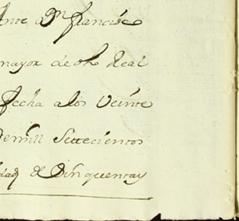 Ante Dn Francisco
mayor de dho Real
fecha a los Veinte
de mill Setecientos
edad de Cinquenta y